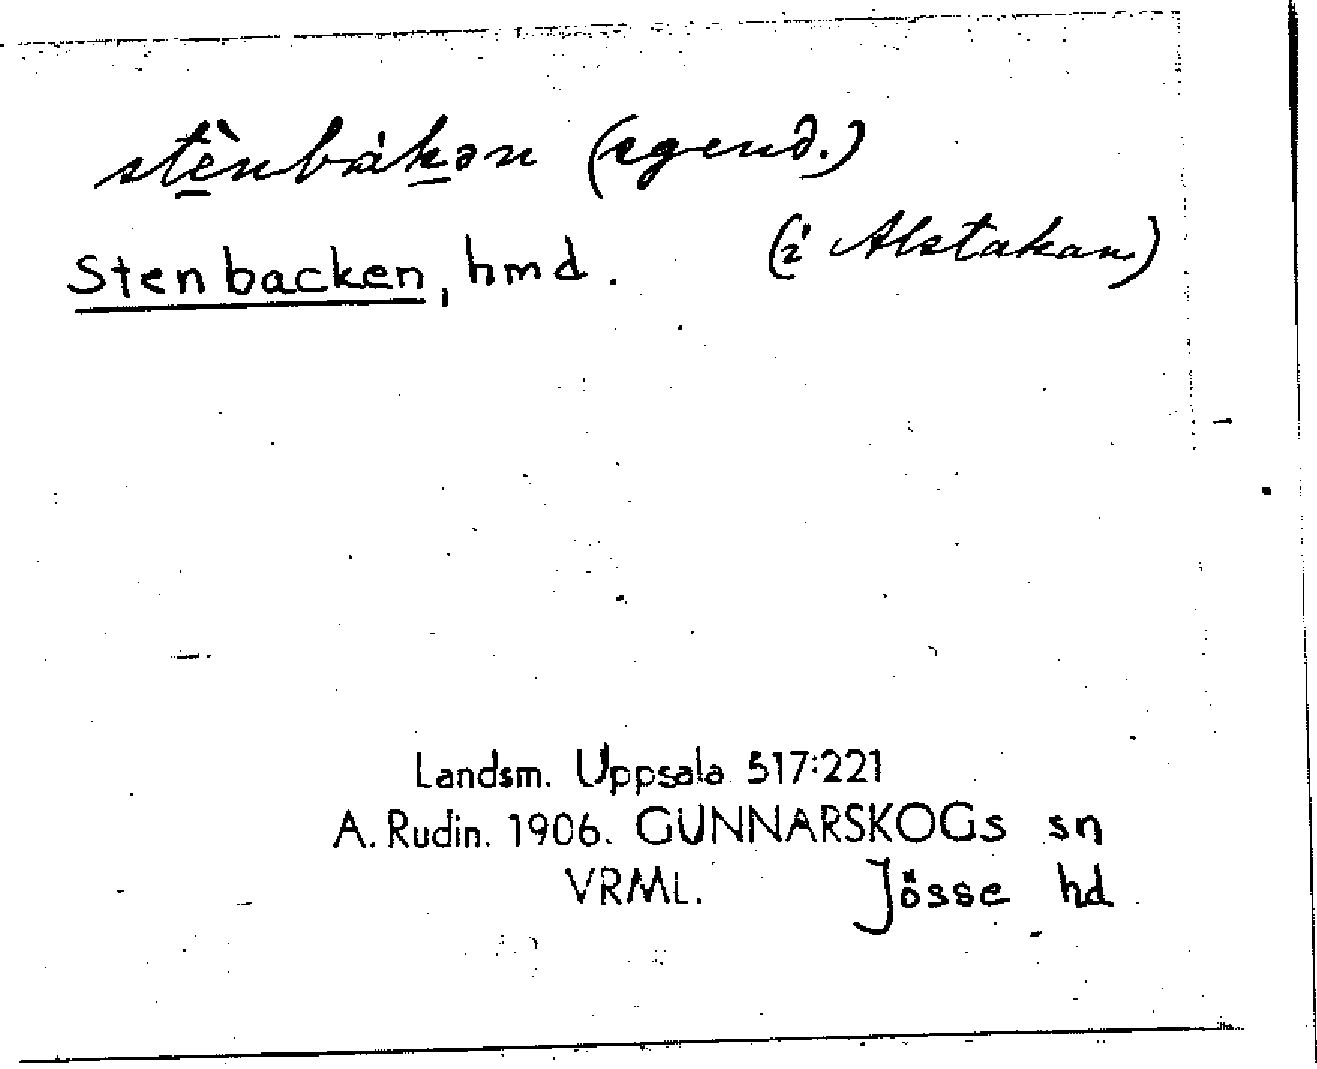 stènbákən (egend.)
(i Alstakan)
Stenbacken, hmd.
Landsm. Uppsala 517:221
A. Rudin. 1906. GUNNARSKOGs sn
VRML. Jösse hd